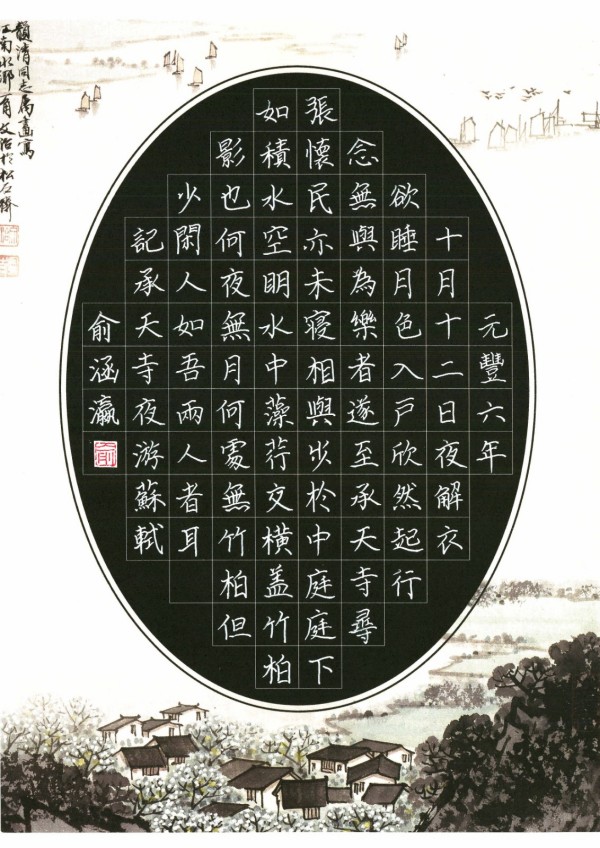 元豐六年
十月十二日夜解衣
欲睡月色入戶欣然起行
念無與為樂者遂至承天寺尋
張懷民亦未寢相與步於中庭庭下
如積水空明水中藻荇交橫盖竹柏
影也何夜無月何處無竹柏但
少閑人如吾兩人者耳
記承天寺夜游蘇軾
俞涵瀛
俞
清同志属畫寫
江南水鄉一角文治於松石齋